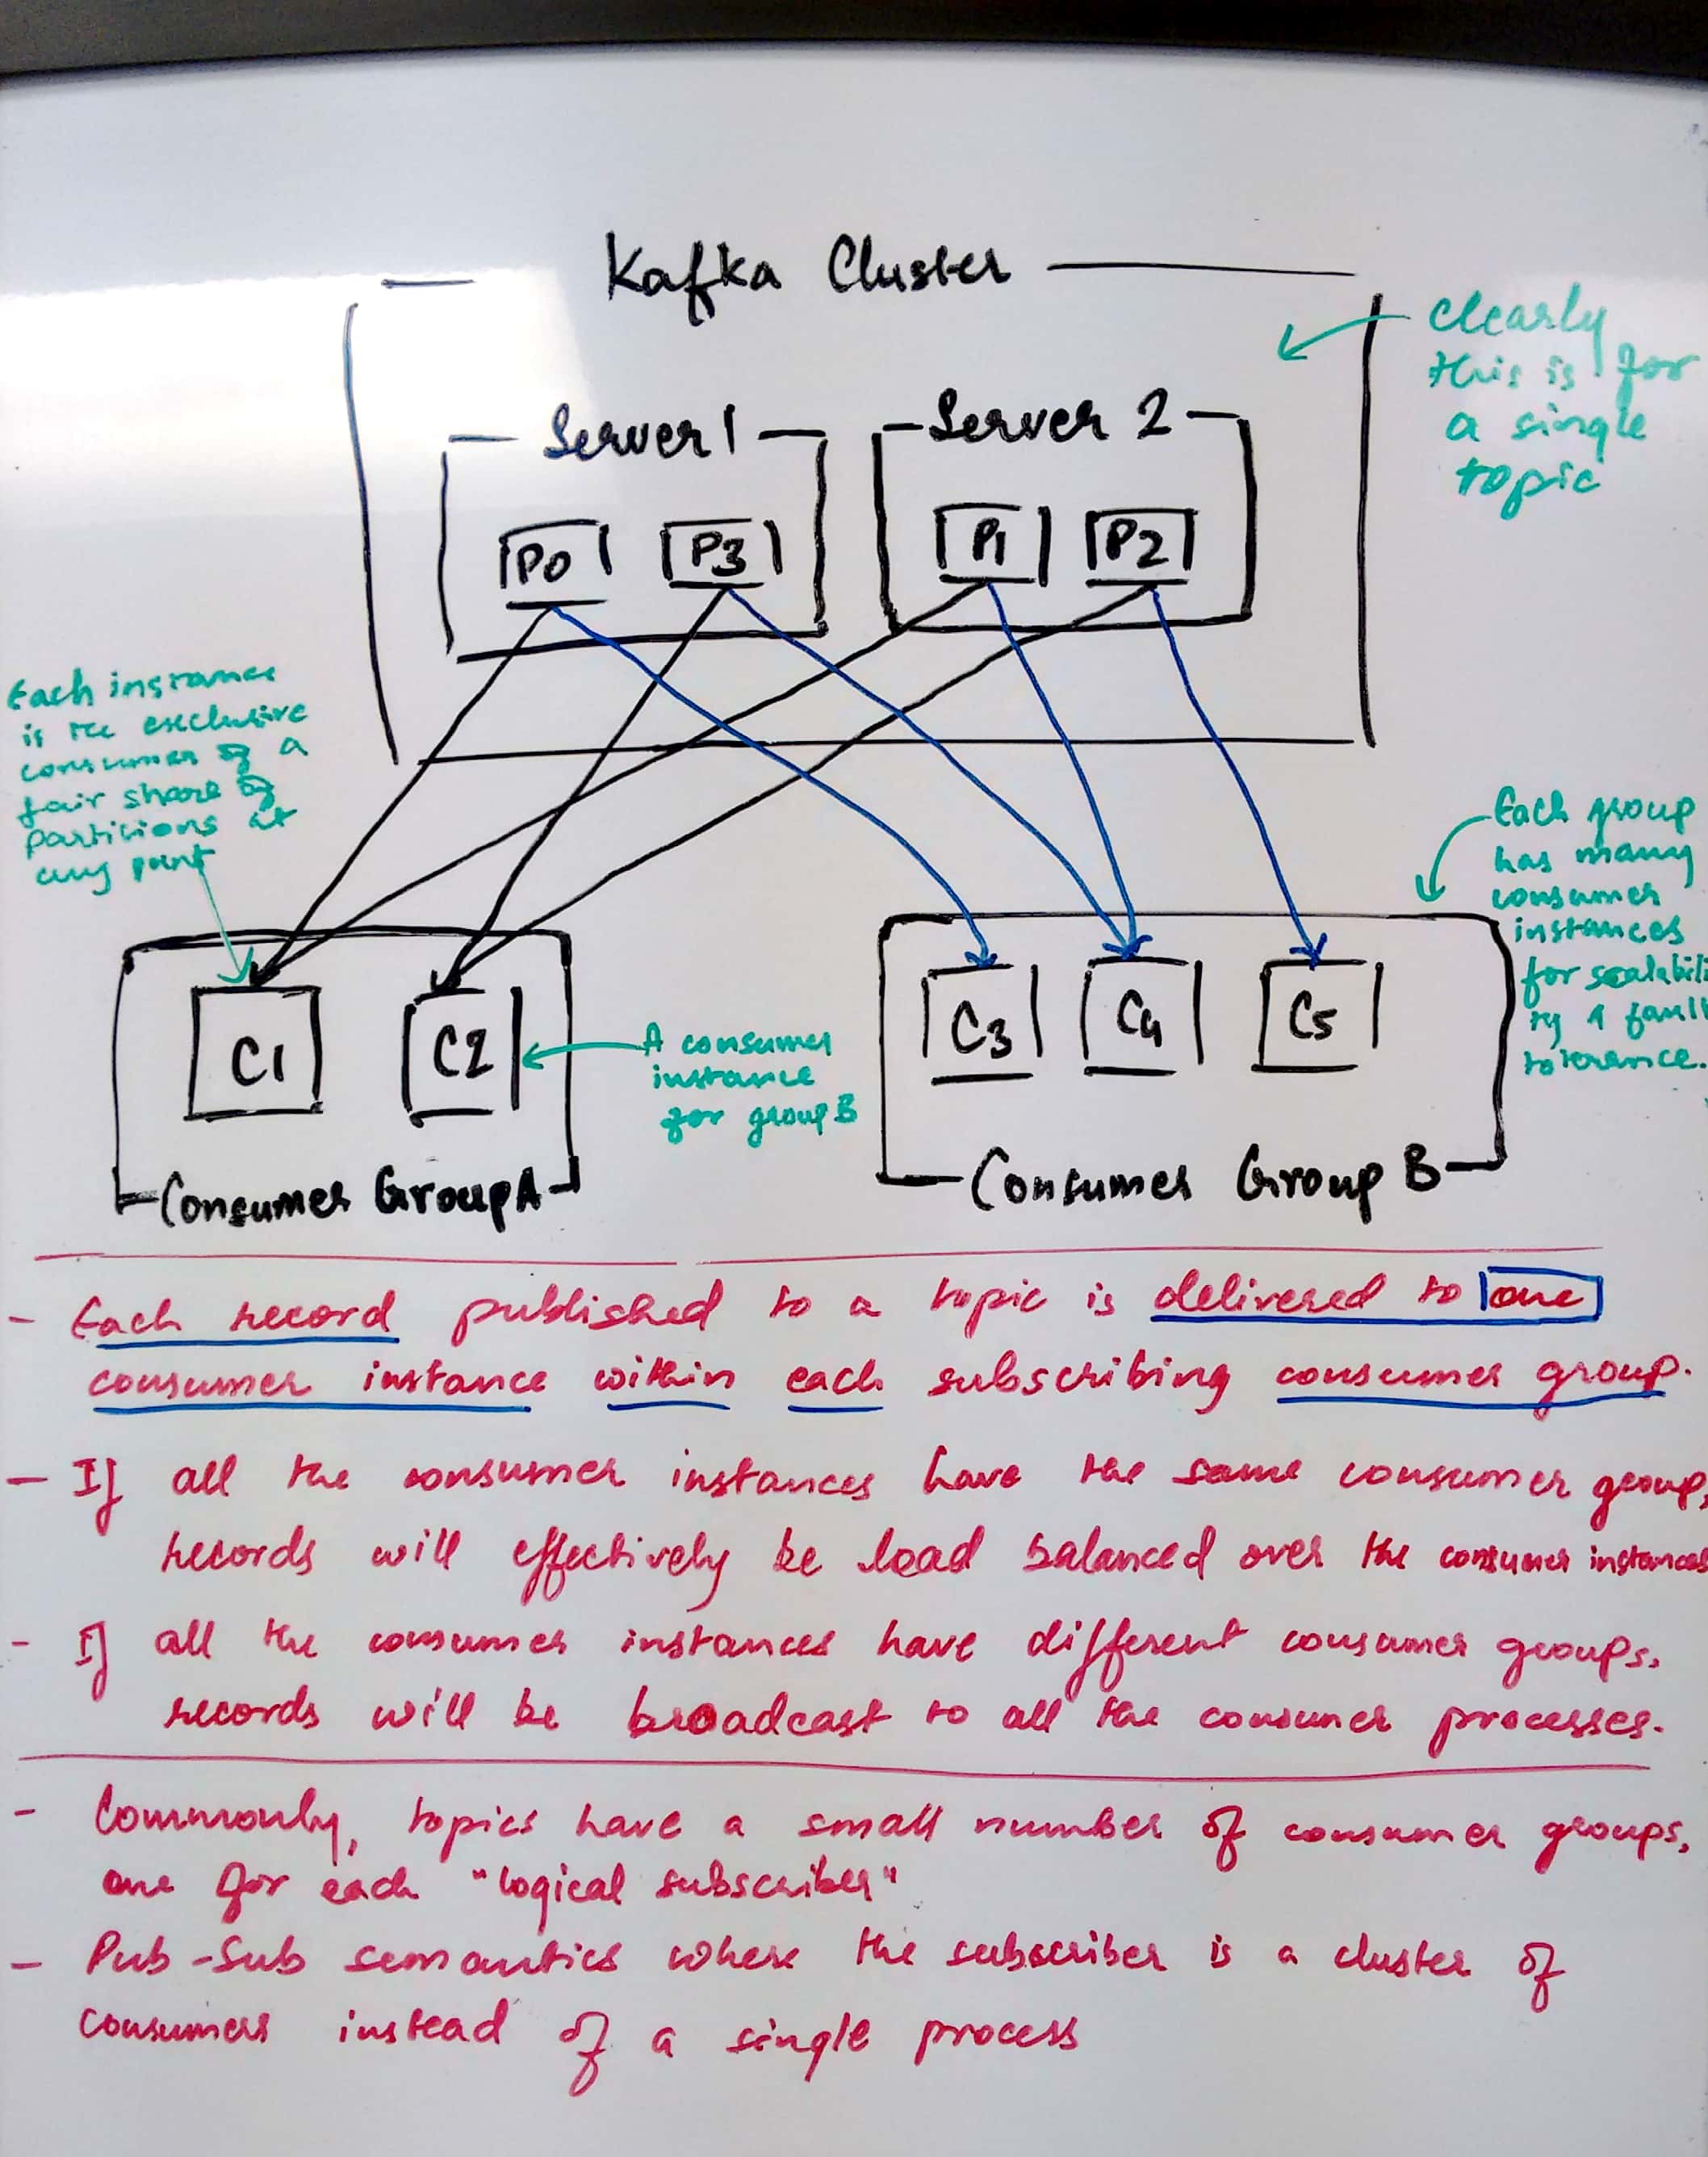 Kafka Cluster
clearly
this is for
a single
topic
Server 1
Server 2
P0
P3
P1
P2
Each instance
is the exclusive
consumer of a
fair share of
partitions at
any point
Each group
has many
consumer
instances
for scalabili
ty & fault
tolerance.
C1
C2
A consumer
instance
for group B
C3
C4
C5
Consumer Group A
Consumer Group B
- Each record published to a topic is delivered to one
consumer instance within each subscribing consumer group.
- If all the consumer instances have the same consumer group,
records will effectively be load balanced over the consumer instances
- If all the consumer instances have different consumer groups,
records will be broadcast to all the consumer processes.
- Commonly, topics have a small number of consumer groups,
one for each "logical subscriber"
- Pub-Sub semantics where the subscriber is a cluster of
consumers instead of a single process